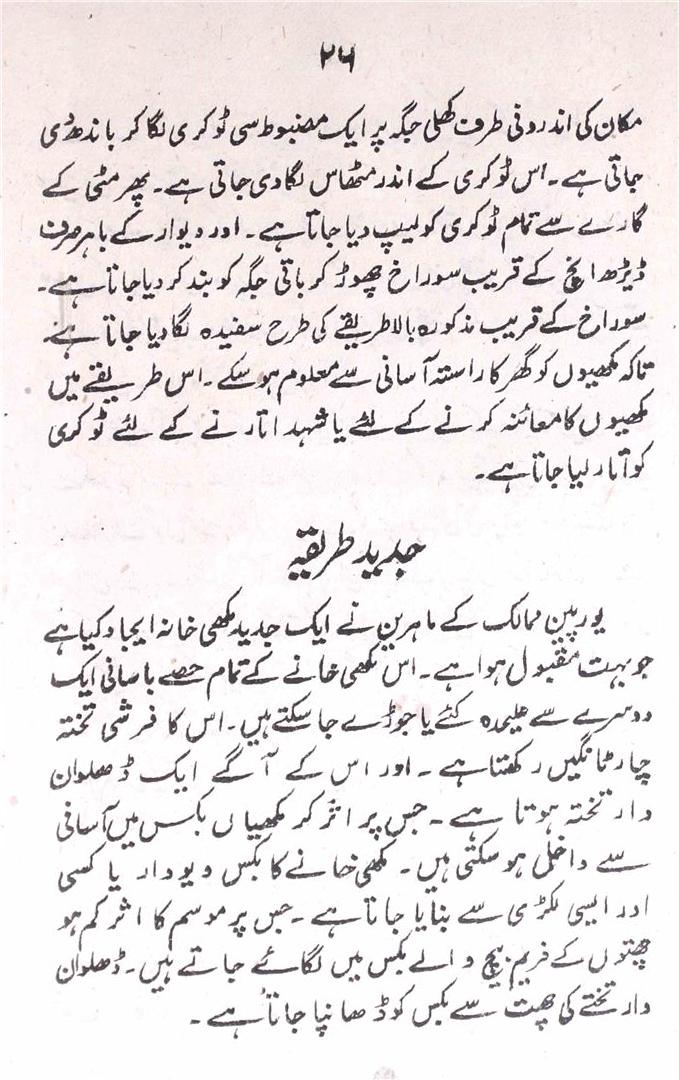 ۲۶
مکان کی اندرونی طرف کھلی جگہ پر ایک مضبوط سی ٹوکری لگا کر باندھ دی
جاتی ہے۔ اس ٹوکری کے اندر مٹھاس لگا دی جاتی ہے۔ پھر مٹی کے
گارے سے تمام ٹوکری کو لیپ دیا جاتا ہے۔ اور دیوار کے باہر صرف
ڈیڑھ انچ کے قریب سوراخ چھوڑ کر باقی جگہ کو بند کر دیا جاتا ہے۔
سوراخ کے قریب مذکورہ بالا طریقے کی طرح سفیدہ لگا دیا جاتا ہے۔
تاکہ مکھیوں کو گھر کا راستہ آسانی سے معلوم ہو سکے۔ اس طریقے میں
مکھیوں کا معائنہ کرنے کے لئے یا شہد اتارنے کے لئے ٹوکری
کو اتار لیا جاتا ہے۔
جدید طریقہ
یورپین ممالک کے ماہرین نے ایک جدید مکھی خانہ ایجاد کیا ہے
جو بہت مقبول ہوا ہے۔ اس مکھی خانے کے تمام حصے باسانی ایک
دوسرے سے علیحدہ کئے یا جوڑے جا سکتے ہیں۔ اس کا فرشی تختہ
چار ٹانگیں رکھتا ہے۔ اور اس کے آگے ایک ڈھلوان
دار تختہ ہوتا ہے۔ جس پر اتر کر مکھیاں بکس میں آسانی
سے داخل ہو سکتی ہیں۔ مکھی خانے کا بکس دیودار یا کسی
اور ایسی لکڑی سے بنایا جاتا ہے۔ جس پر موسم کا اثر کم ہو
چھتوں کے فریم بیچ والے بکس میں لگائے جاتے ہیں۔ ڈھلوان
دار تختے کی چھت سے بکس کو ڈھانپا جاتا ہے۔